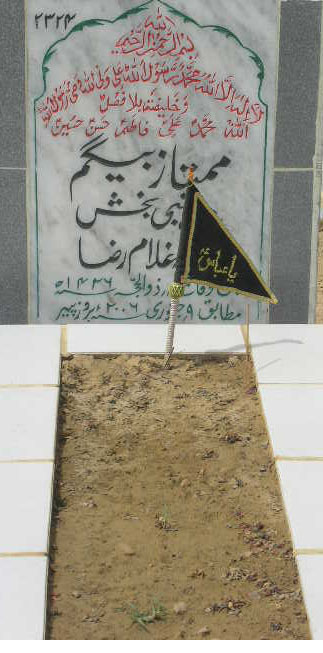 ۲۳۲۴
اللہ
بسم اللہ الرحمن الرحیم
لا الہ الا اللہ محمد رسول اللہ علی ولی اللہ وصی رسول اللہ
وخلیفتہ بلا فصل
اللہ محمد علی فاطمہ حسن حسین
ممتاز بیگم
نبی بخش
غلام رضا
ذوالحجہ ۱۴۲۶ھ
مطابق ۹ جنوری ۲۰۰۶ بروز پیر
یا عباس